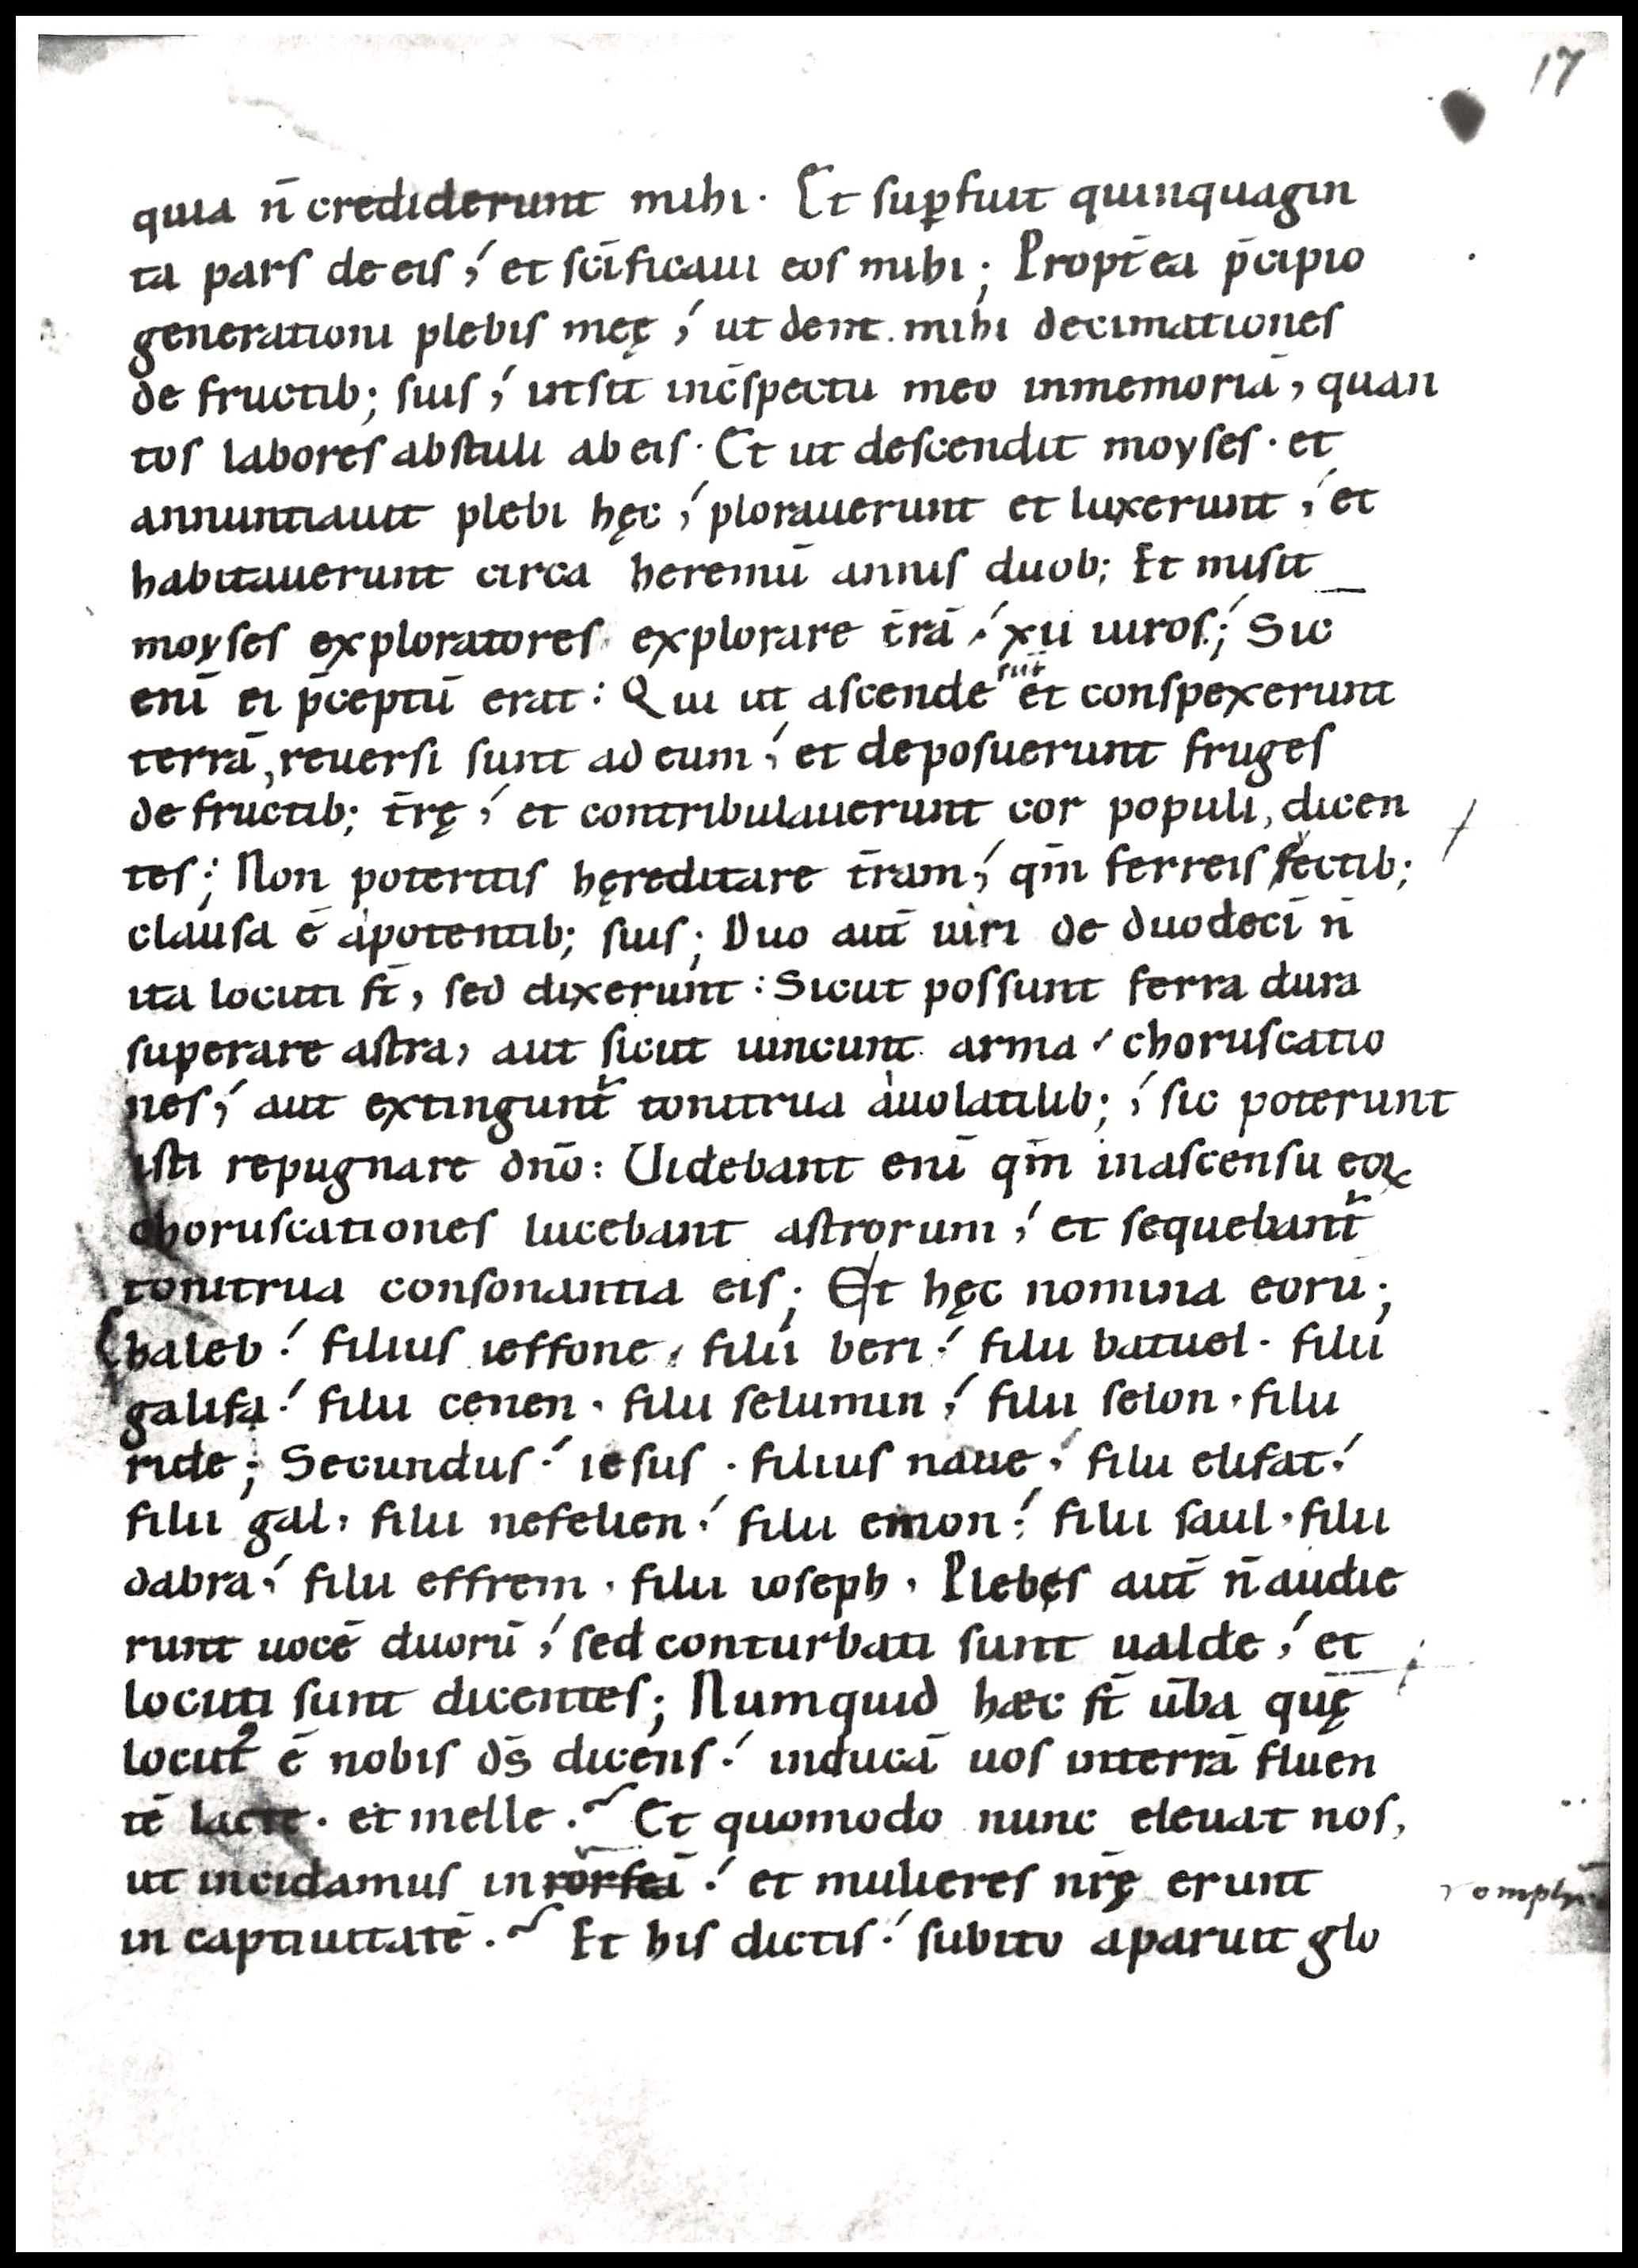 17
quia n̄ crediderunt mihi. Et suꝑfuit quinquagin
ta pars de eis; et scīficaui eos mihi; Propt̄ea p̄cipio
generationi plebis meę; ut dent mihi decimationes
de fructib; suis; ut sit incs̄pectu meo inmemoriā, quan
tos labores abstuli ab eis. Et ut descendit moyses. et
annuntiauit plebi hęc; plorauerunt et luxerunt; et
habitauerunt circa heremū annis duob; Et misit
moyses exploratores explorare tr̄ā; xii uiros; Sic
enī ei p̄ceptū erat: Qui ut ascende et conspexerunt
terrā, reuersi sunt ad eum; et deposuerunt fruges
de fructib; tr̄ę; et contribulauerunt cor populi, dicen
tes; Non poteritis hęreditare tr̄am; qm̄ ferreis ſectib;
clausa ē apotentib; suis; Duo aut̄ uiri de duodecī n̄
ita locuti st̄, sed dixerunt: Sicut possunt ferra dura
superare astra, aut sicut uincunt arma choruscatio
nes; aut extingunt᷑ tonitrua auolatilib; sic poterunt
isti repugnare dnō: Uidebant enī qm̄ inascensu eoꝝ
choruscationes lucebant astrorum; et sequebant᷑
tonitrua consonantia eis; Et hęc nomina eorū;
Chaleb: filius ieffone, filii beri: filii batuel. filii
galifa: filii cenen. filii selumin: filii selon. filii
ride; Secundus: iesus. filius naue: filii elifat:
filii gal, filii nefelien: filii emon: filii saul. filii
dabra: filii effrem. filii ioseph. Plebęs aut̄ n̄ audie
runt uocē duorū; sed conturbati sunt ualde; et
locuti sunt dicentes; Numquid hæc st̄ ūba quę
locutꝰ ē nobis ds̄ dicens: inducā uos interrā fluen
tē lacte. et melle. Et quomodo nunc eleuat nos,
ut incidamus inrorfeā: et mulieres nr̄ę erunt
in captiuitatē. Et his dictis: subito aparuit glo